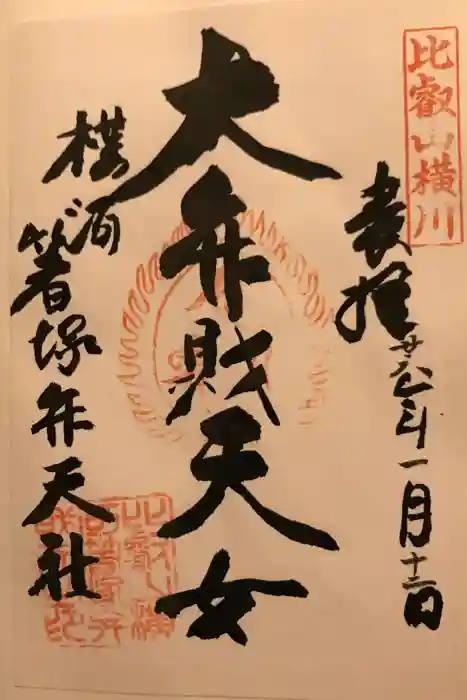 比叡山横川
奉拝 廿八年一月十二日
大弁財天女
横河
箸塚弁天社